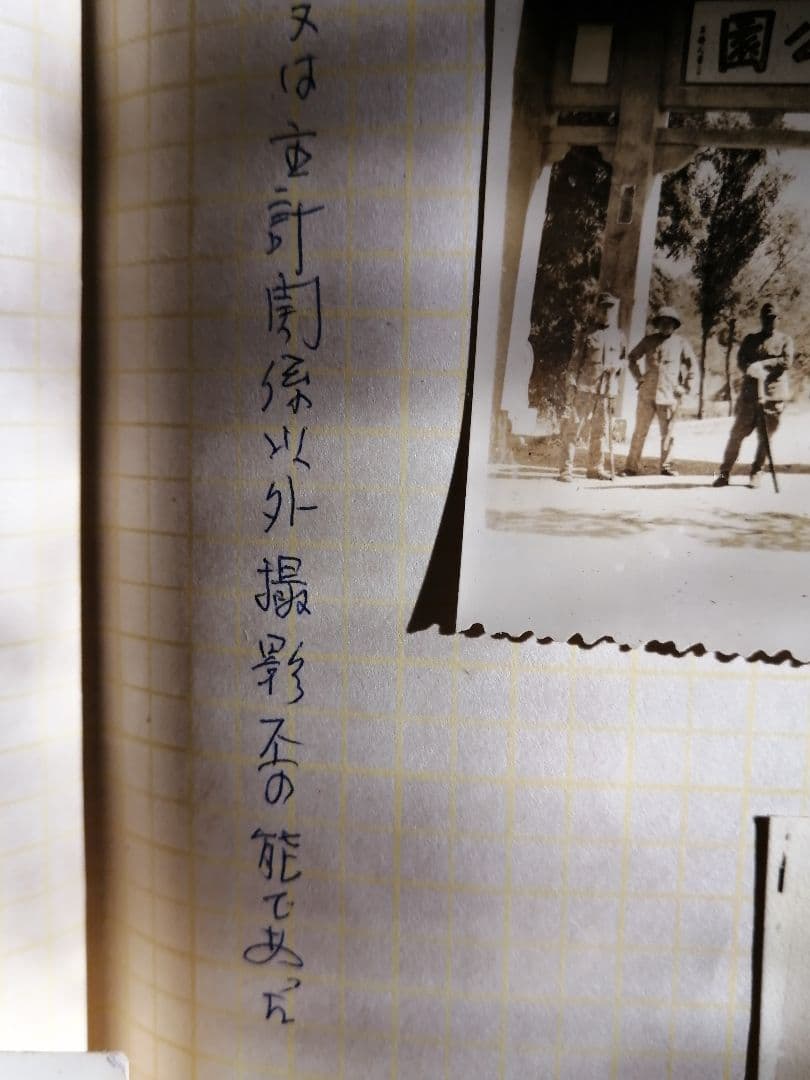 公園
又は主計関係以外撮影不可能であった